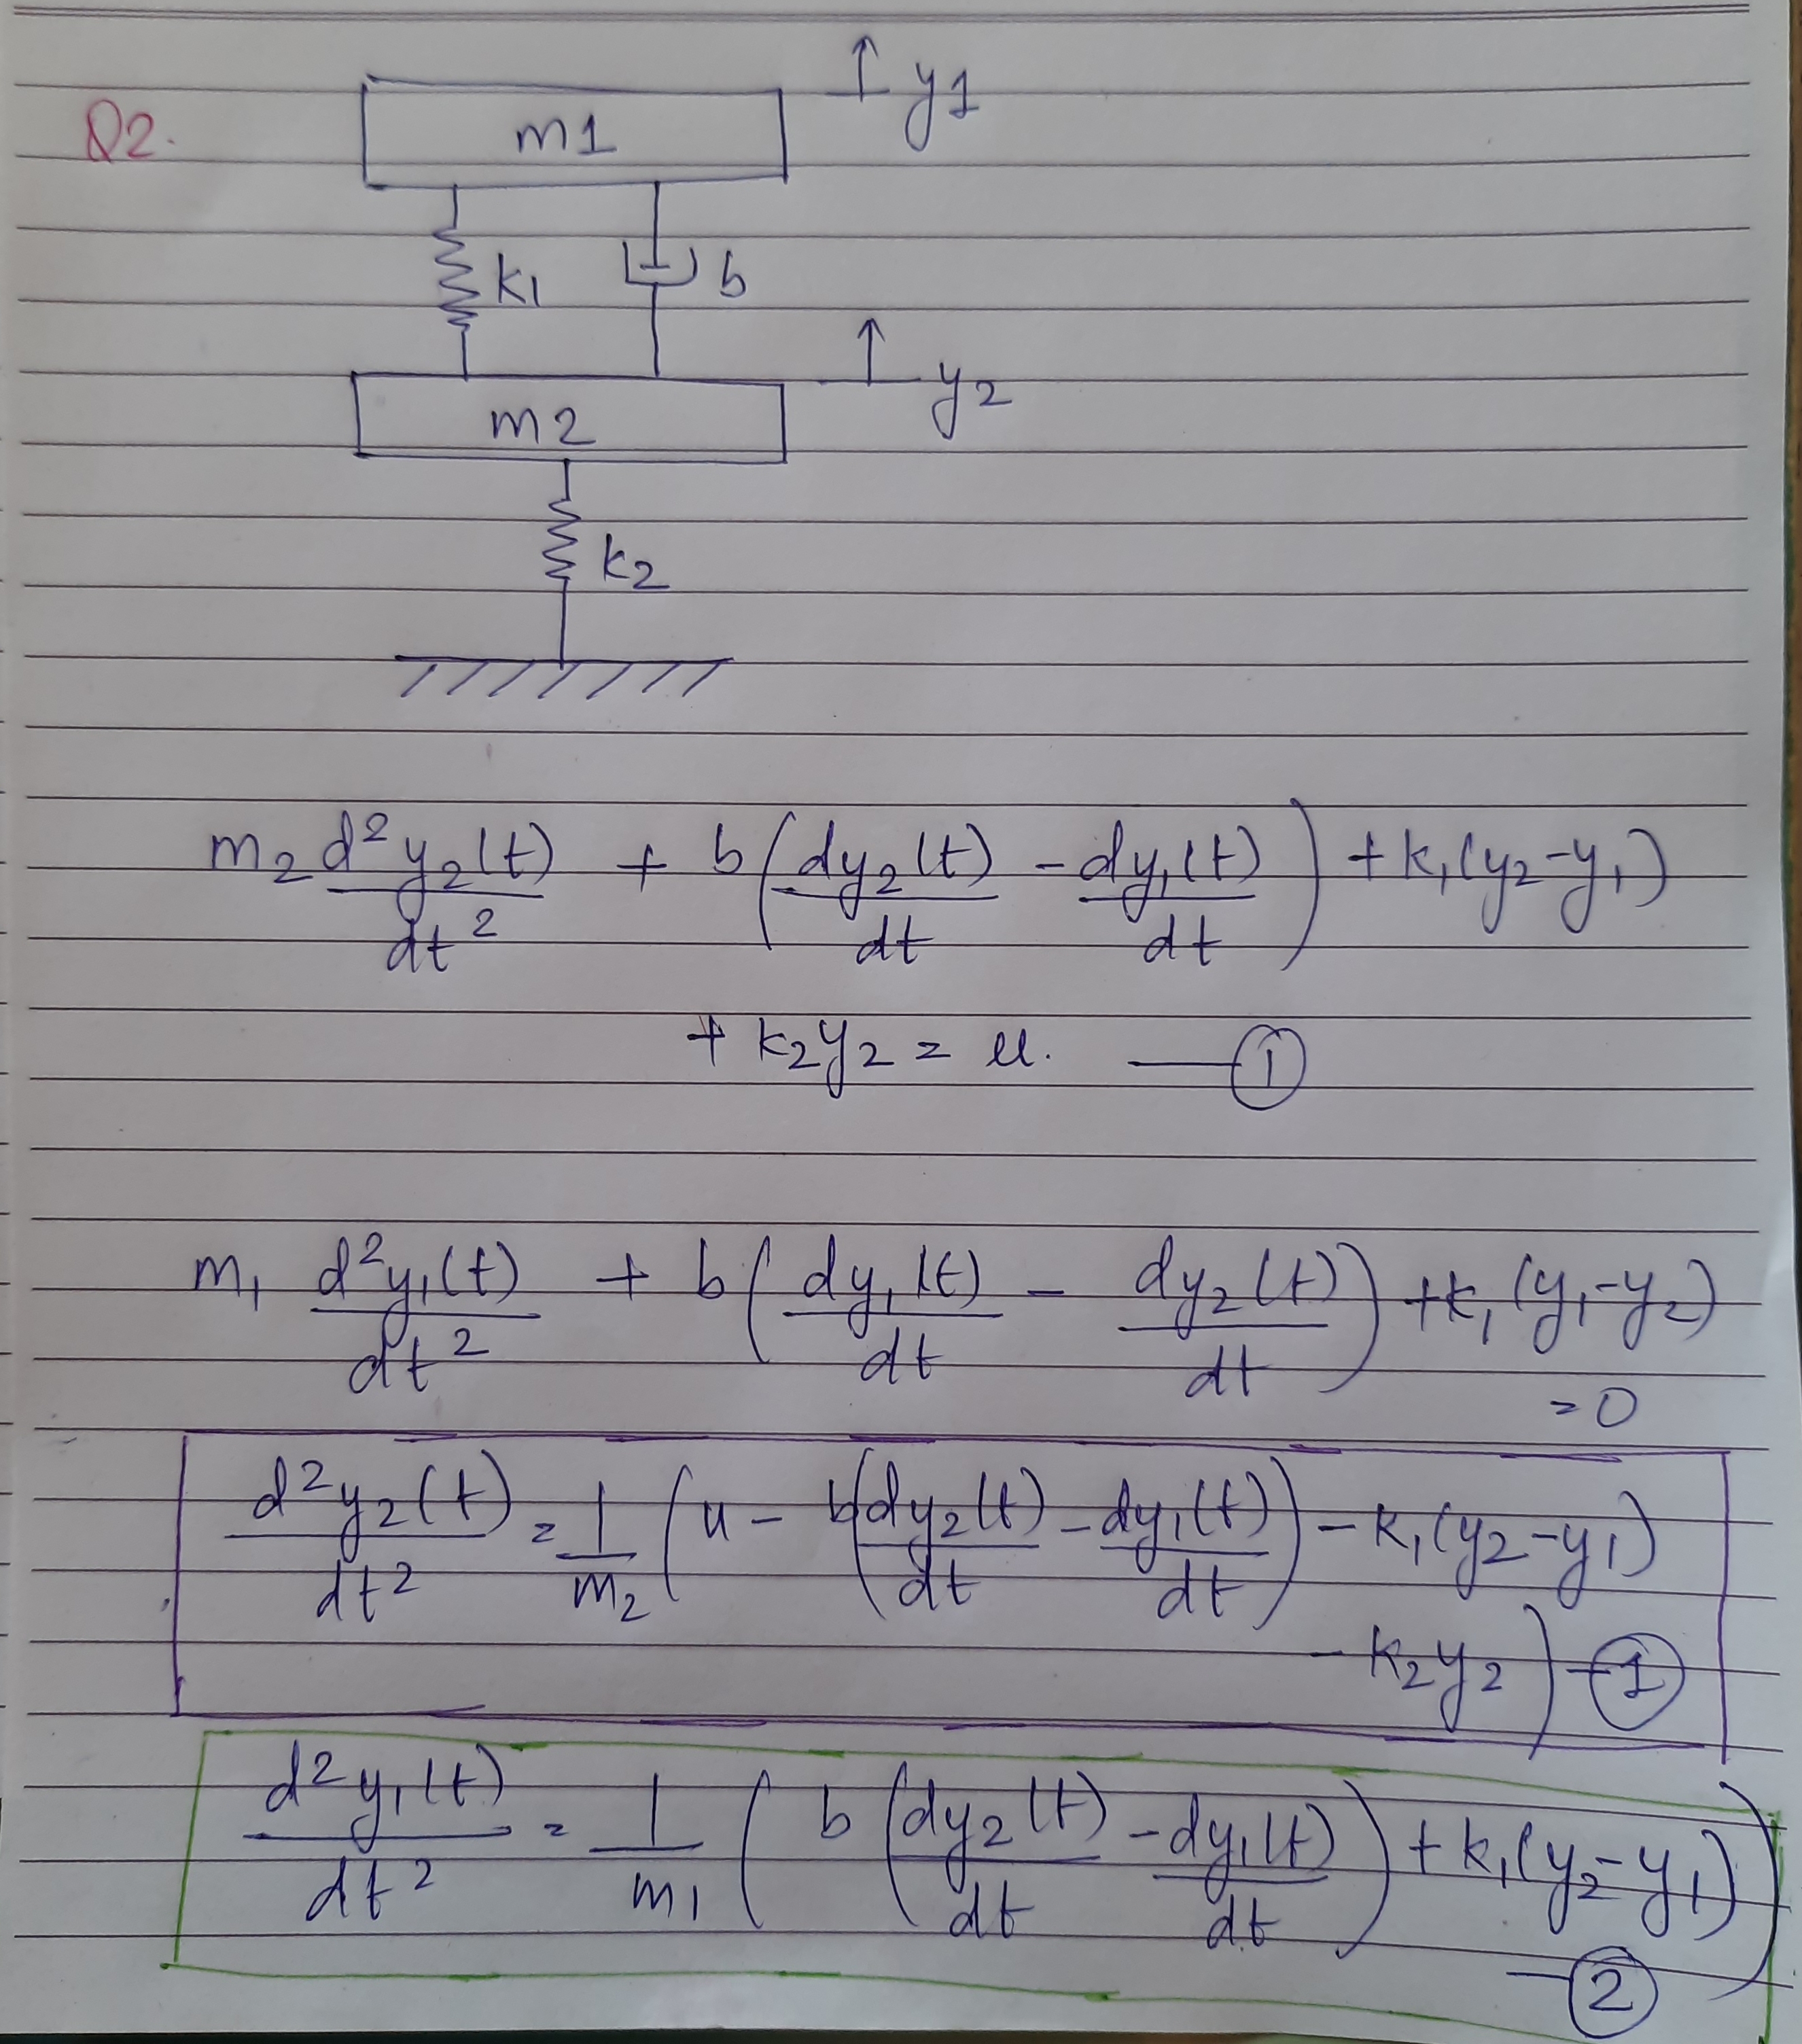 y1
Q2.
m1
k1
b
y2
m2
k2
m2 d²y2(t)/dt² + b(dy2(t)/dt - dy1(t)/dt) + k1(y2-y1)
+ k2y2 = u. — ①
m1 d²y1(t)/dt² + b(dy1(t)/dt - dy2(t)/dt) + k1(y1-y2)
= 0
d²y2(t)/dt² = 1/m2 (u - b(dy2(t)/dt - dy1(t)/dt) - k1(y2-y1)
- k2y2) — ①
d²y1(t)/dt² = 1/m1 ( b(dy2(t)/dt - dy1(t)/dt) + k1(y2-y1))
— ②